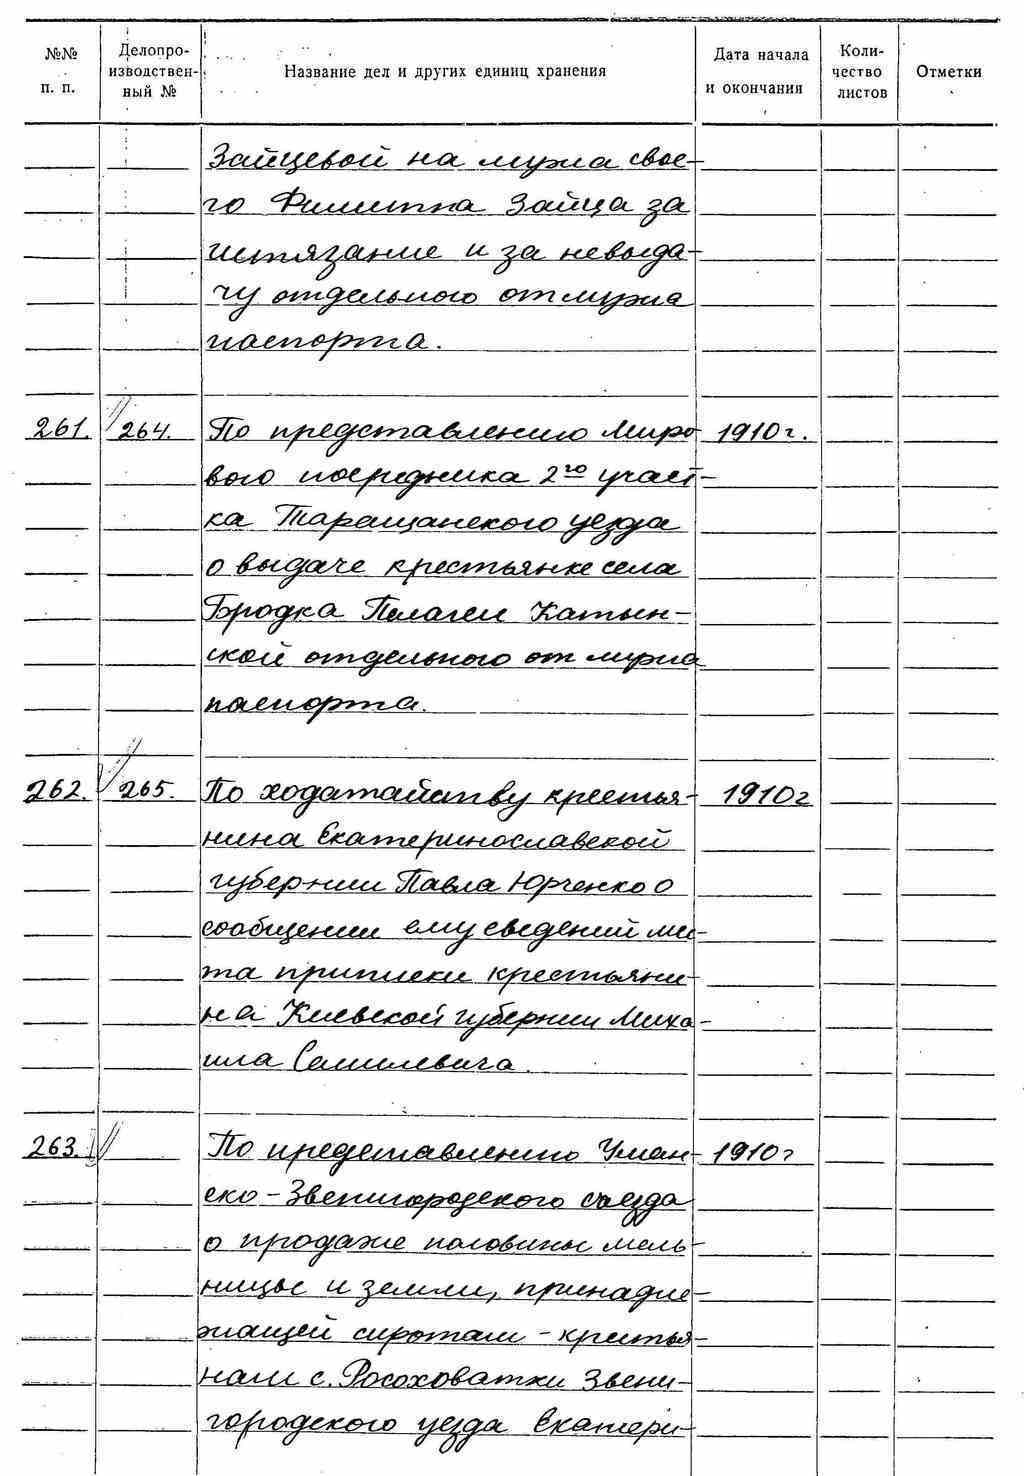 №№ п. п. Делопроизводственный № Название дел и других единиц хранения Дата начала и окончания Количество листов Отметки
Зайцевой на мужа свое-
го Филиппа Зайца за
истязание и за невыда-
чу отдельного от мужа
паспорта.
261. 264. По представлению Миро- 1910 г.
вого посредника 2го участ-
ка Таращанского уезда
о выдаче крестьянке села
Бродка Пелагеи Катын-
ской отдельного от мужа
паспорта.
262. 265. По ходатайству крестья- 1910 г
нина Екатеринославской
губернии Павла Юрченко о
сообщении ему сведений ме-
та приписки крестьяни-
на Киевской губернии Миха-
ила Самилевича.
263. По представлению Уман- 1910 г
ско-Звенигородского съезда
о продаже половины мель-
ницы и земли, принадле-
жащей сиротам - крестья-
нам с. Росоховатки Звени-
городского уезда Екатери-